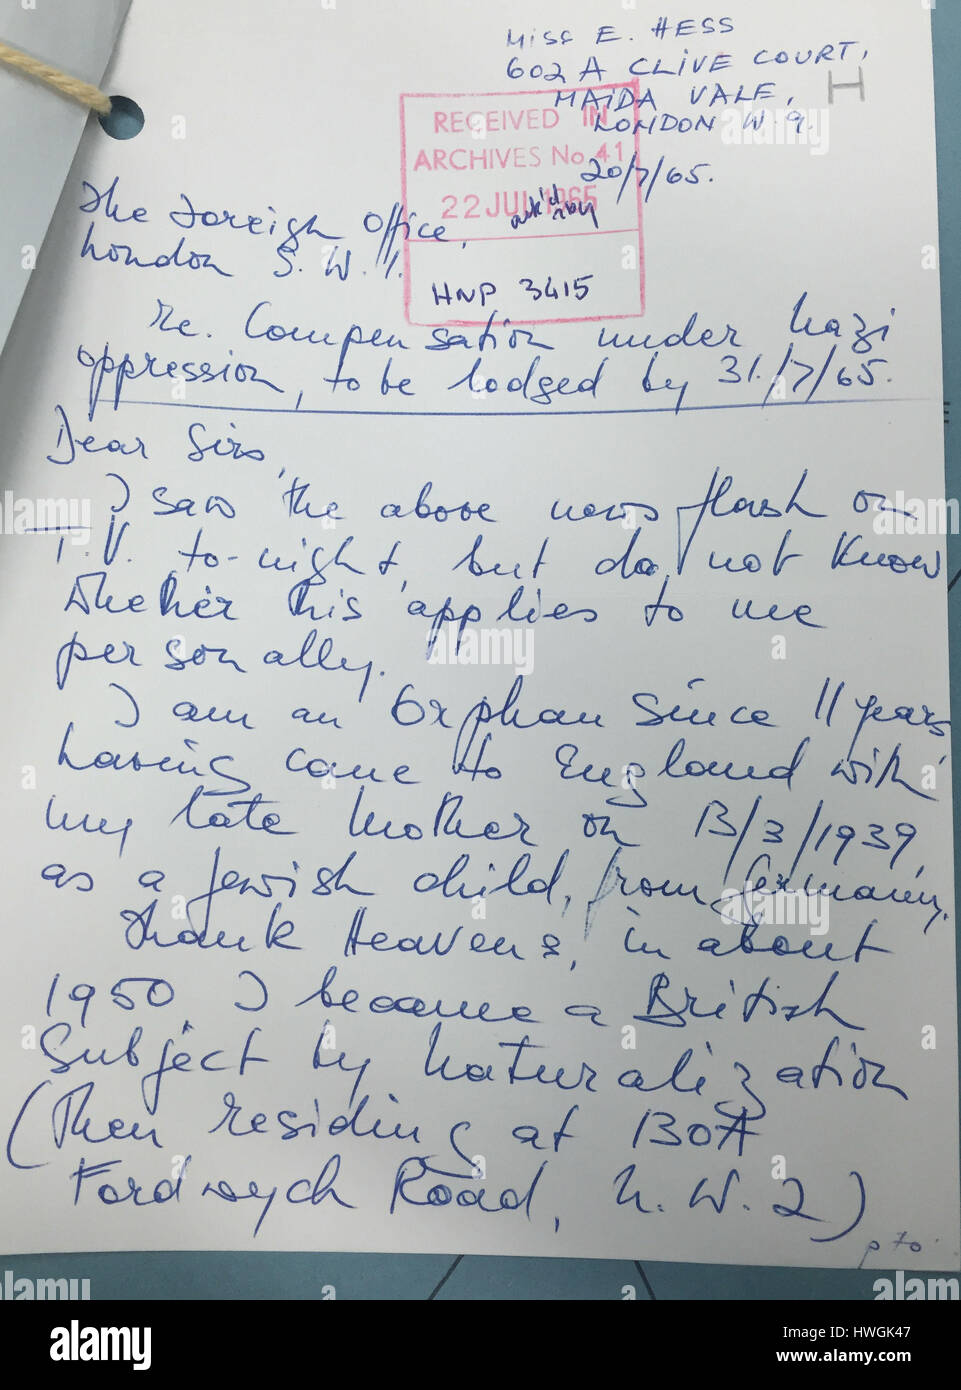 Miss E. HESS
602 A CLIVE COURT,
MAIDA VALE,
LONDON W.9.
H
RECEIVED IN
ARCHIVES No. 41
22 JUL 1965
HNP 3415
20/7/65.
The Foreign Office,
London S.W.1.
re. Compensation under Nazi
oppression, to be lodged by 31./7/65.
Dear Sirs,
I saw the above news flash on
T.V. to-night, but do not know
whether this applies to me
personally.
I am an Orphan since 11 years,
having come to England with
my late Mother on 13/3/1939,
as a Jewish child, from Germany.
Thank Heavens, in about
1950 I became a British
Subject by Naturalization
(Then residing at 130A
Fordwych Road, N.W.2)
pto
alamy
Image ID: HWGK47
www.alamy.com